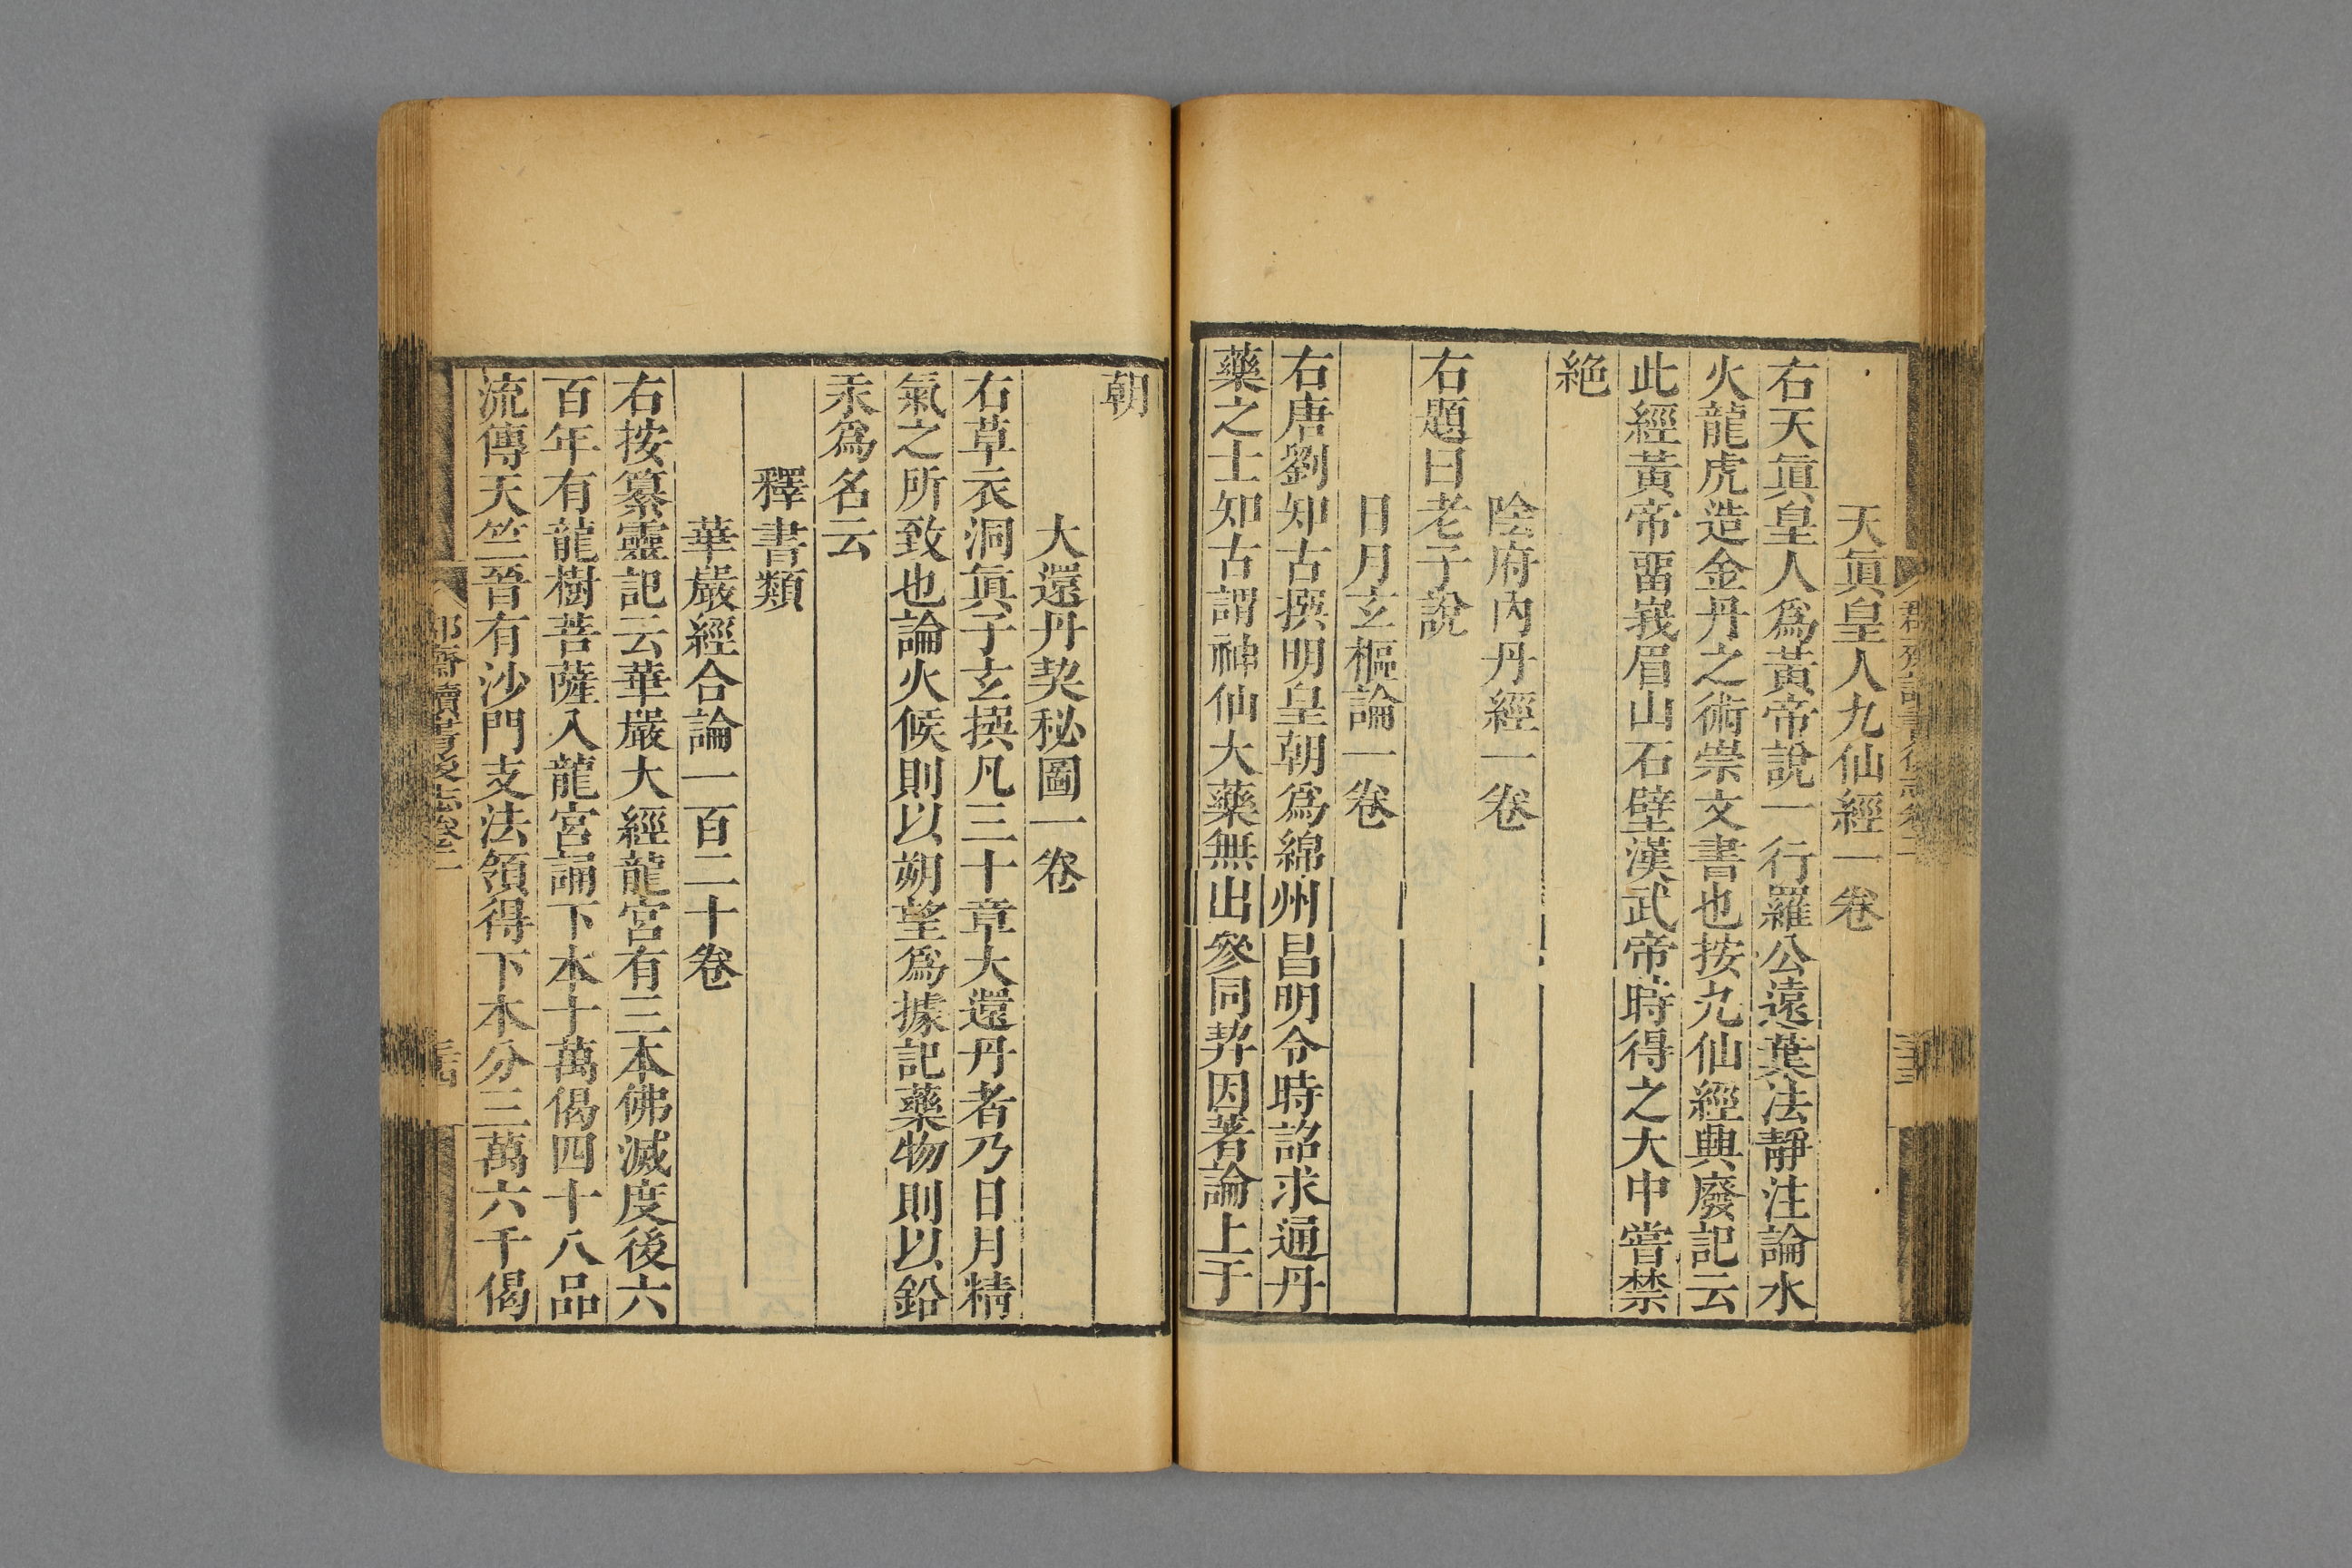 天眞皇人九仙經一卷
右天眞皇人爲黃帝說一行羅公遠葉法靜注論水
火龍虎造金丹之術崇文書也按九仙經興廢記云
此經黃帝畱峩眉山石壁漢武帝時得之大中嘗禁
絶
陰府內丹經一卷
右題曰老子說
日月玄樞論一卷
右唐劉知古撰明皇朝爲綿州昌明令時詔求通丹
藥之士知古謂神仙大藥無出參同契因著論上于
朝
大還丹契秘圖一卷
右草衣洞眞子玄撰凡三十章大還丹者乃日月精
氣之所致也論火候則以朔望爲據記藥物則以鉛
汞爲名云
釋書類
華嚴經合論一百二十卷
右按纂靈記云華嚴大經龍宮有三本佛滅度後六
百年有龍樹菩薩入龍宮誦下本十萬偈四十八品
流傳天竺晉有沙門支法領得下本分三萬六千偈